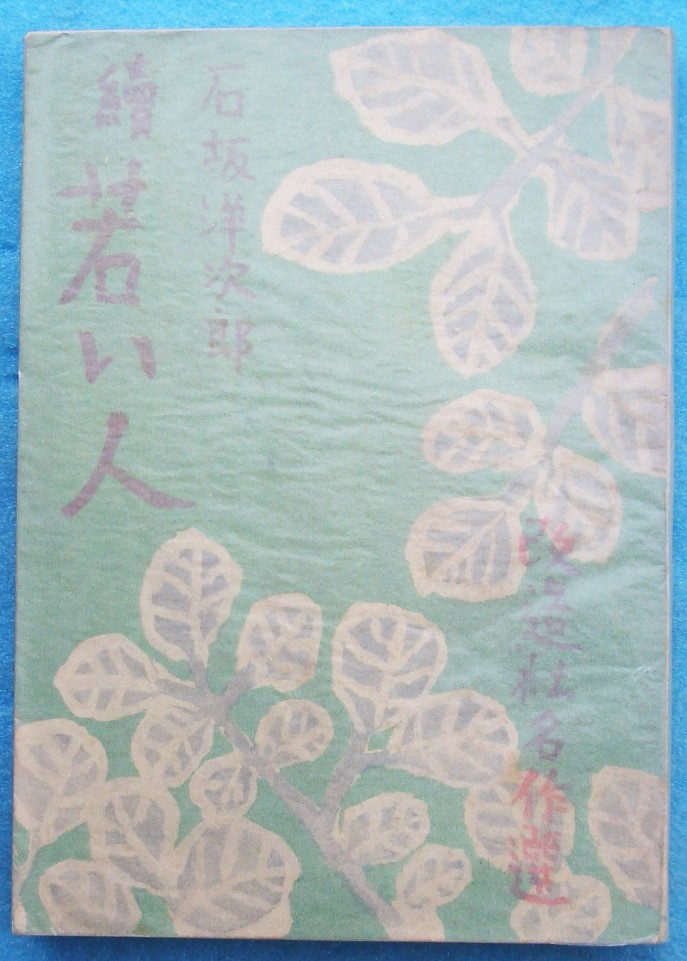 改造社名作選
石坂洋次郎
續若い人